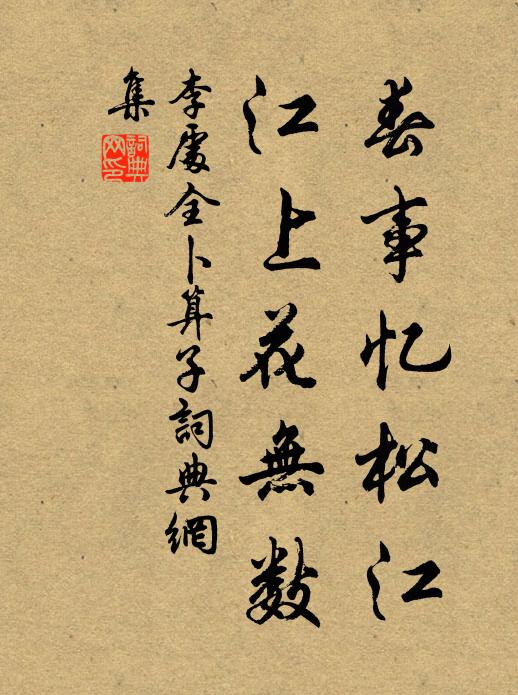 春事忆松江
江上花無数
李處全卜算子詞典網
集
詞典网印